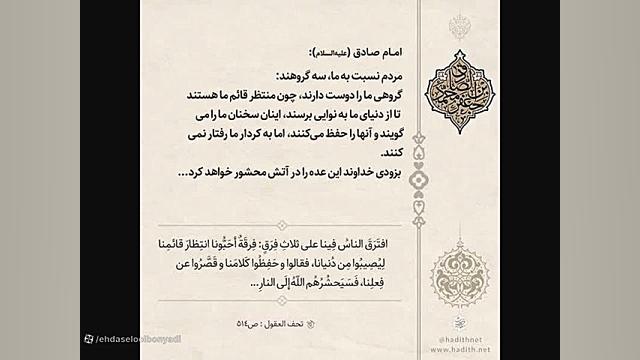 امـام صادق (علیه‌السلام):
مردم نسبت به ما، سه گروهند:
گروهی ما را دوست دارند، چون منتظر قائم ما هستند
تا از دنیای ما به نوایی برسند، اینان سخنان ما را می
گویند و آنها را حفظ می‌کنند، اما به کردار ما رفتار نمی
کنند.
بزودی خداوند این عده را در آتش محشور خواهد کرد...
افتَرَقَ الناسُ فِینا علی ثلاثِ فِرَقٍ: فِرقَةٌ أحَبُّونا انتِظارَ قائمِنا
لِيُصِيبُوا مِن دُنيانا، فقالوا و حَفِظُوا كَلامَنا و قَصَّرُوا عن
فِعلِنا، فَسَيَحشُرُهُم اللّهُ إلَى النارِ...
تحف العقول : ص۵۱۴
@hadithnet
www.hadith.net
/ehdaseloolbonyadi